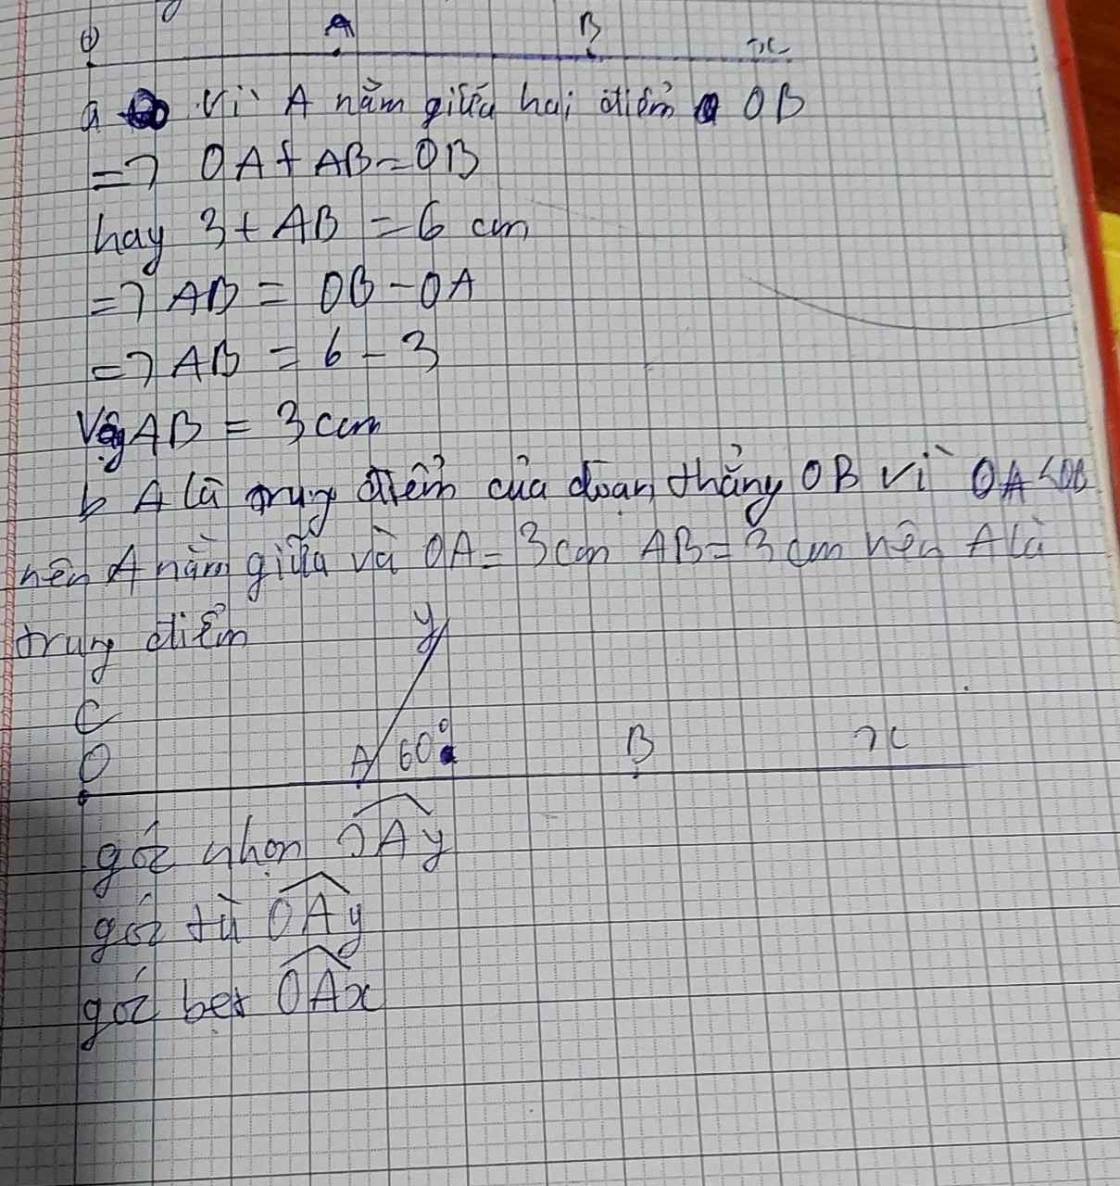 O A B x
a Vì A nằm giữa hai điểm OB
=> OA + AB = OB
hay 3 + AB = 6 cm
=> AB = OB - OA
=> AB = 6 - 3
Vậy AB = 3 cm
b A là trung điểm của đoạn thẳng OB vì OA < OB
nên A nằm giữa và OA = 3 cm AB = 3 cm nên A là
trung điểm
y
C
O A 60° B x
góc nhọn Ay
góc tù OAy
góc bẹt OAx